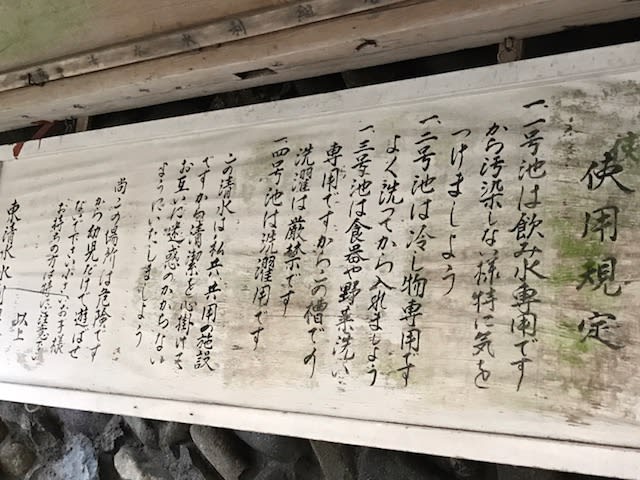 使用規定
一、一号池は飲み水専用です
から汚染しない様特に気を
つけましょう
一、二号池は冷し物専用です
よく洗ってから入れましょう
一、三号池は食器や野菜洗い
専用ですからこの槽での
洗濯は厳禁です
一、四号池は洗濯用です
この清水は私共、共用の施設
ですから清潔を心掛けて
お互いに迷惑のかからない
ようにいたしましょう
尚この場所は危険です
から幼児だけで遊ばせ
ないで下さい小さいお子様
お持ちの方は特に注意
以上
東清水水利